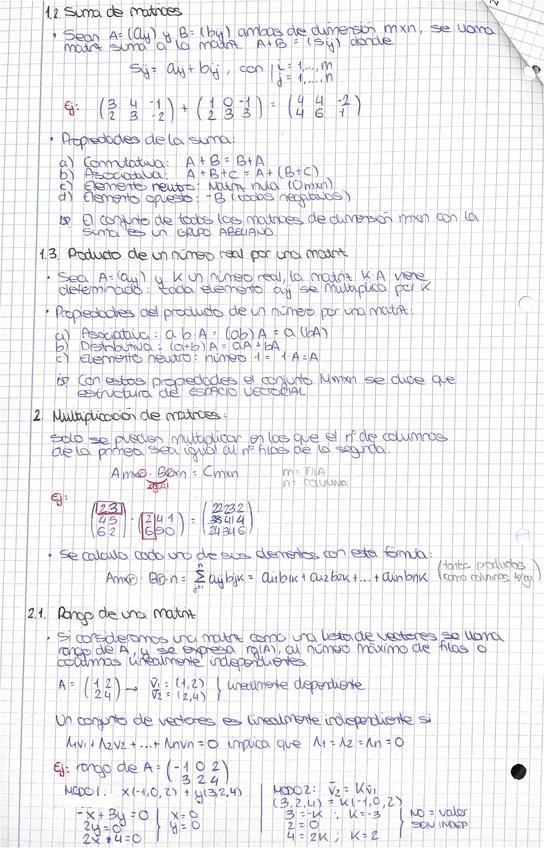 1.2 Suma de matrices
• Sean A=(aij) y B=(bij) ambas de dimensión mxn, se llama
matriz suma a la matriz A+B = (Sij) donde
Sij = aij + bij, con | i=1,...,m
j=1,...,n
Ej: (3 4 -1 / 2 3 -2) + (1 0 -1 / 2 3 3) = (4 4 -2 / 4 6 1)
• Propiedades de la suma:
a) Conmutativa: A+B = B+A
b) Asociativa: A+B+C = A+(B+C)
c) Elemento neutro: Matriz nula (Omxn)
d) Elemento opuesto: -B (todos negativos)
El conjunto de todas las matrices de dimensión mxn con la
suma es un GRUPO ABELIANO.
1.3. Producto de un número real por una matriz
• Sea A=(aij) y K un número real, la matriz K·A viene
determinado: cada elemento aij se multiplica por K
• Propiedades del producto de un número por una matriz:
a) Asociativa: a·b·A = (ab)A = a(bA)
b) Distributiva: (a+b)A = aA+bA
c) Elemento neutro: número 1 = 1·A=A
Con estas propiedades el conjunto Mmxn se dice que
estructura de ESPACIO VECTORIAL
2. Multiplicación de matrices:
Solo se pueden multiplicar en las que el nº de columnas
de la primera sea igual al nº filas de la segunda.
Amxp · Bpxn = Cmxn
igual
m= FILA
n= COLUMNA
Ej:
(2 3 / 4 5 / 6 2) · (2 4 1 / 6 5 0) = (22 23 2 / 38 41 4 / 24 34 6)
• Se calcula cada uno de sus elementos con esta fórmula:
= Σ aij bjk = ai1b1k + ai2b2k + ... + ainbnk (tantos productos
como columnas
2.1. Rango de una matriz
• Si consideramos una matriz como una lista de vectores se llama
rango de A, y se expresa rg(A), al número máximo de filas o
columnas linealmente independientes.
A = (1 2 / 2 4) → v̄1 = (1,2) / v̄2 = (2,4) } linealmente dependiente
Un conjunto de vectores es linealmente independiente si
λ1v1 + λ2v2 + ... + λnvn = 0 implica que λ1 = λ2 = λn = 0
Ej: rango de A = (-1 0 2 / 3 2 4)
MODO 1: x(-1,0,2) + y(3,2,4)
-x + 3y = 0
2y = 0
2x + 4 = 0
x = 0
y = 0
MODO 2: v̄2 = Kv̄1
(3,2,4) = K(-1,0,2)
3 = -K ; K = -3
2 = 0
4 = 2K ; K = 2
NO = valor
SON INDEP